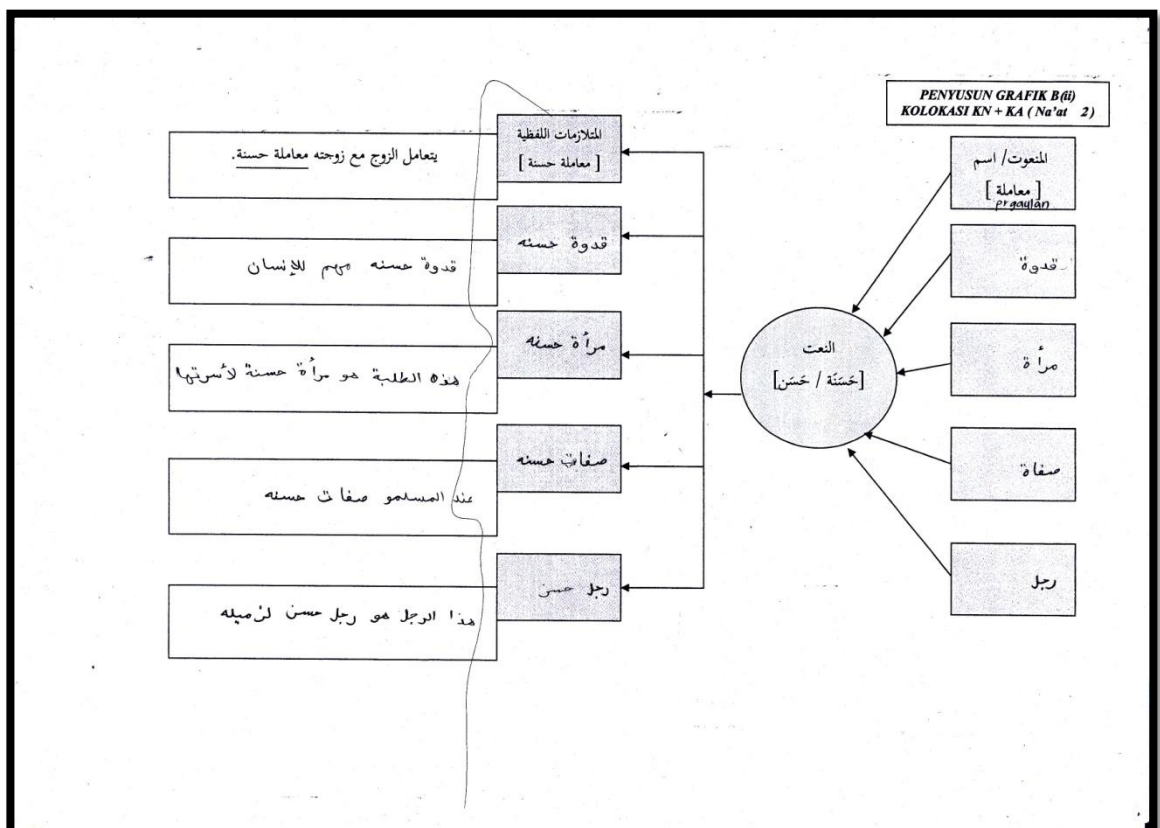 PENYUSUN GRAFIK B(ii)
KOLOKASI KN + KA ( Na'at 2 )
المنعوت/ اسم
[ معاملة ]
prgaulan
قدوة
مرأة
صفاة
رجل
النعت
[حَسَنَة / حَسَن]
المتلازمات اللفظية
[ معاملة حسنة ]
يتعامل الزوج مع زوجته معاملة حسنة.
قدوة حسنه
قدوة حسنه مهم للإنسان
مرأة حسنه
هذه الطلبة هو مرأة حسنة لأسرتها
صفات حسنه
عند المسلمو صفات حسنه
رجل حسن
هذا الرجل هو رجل حسن لزميله